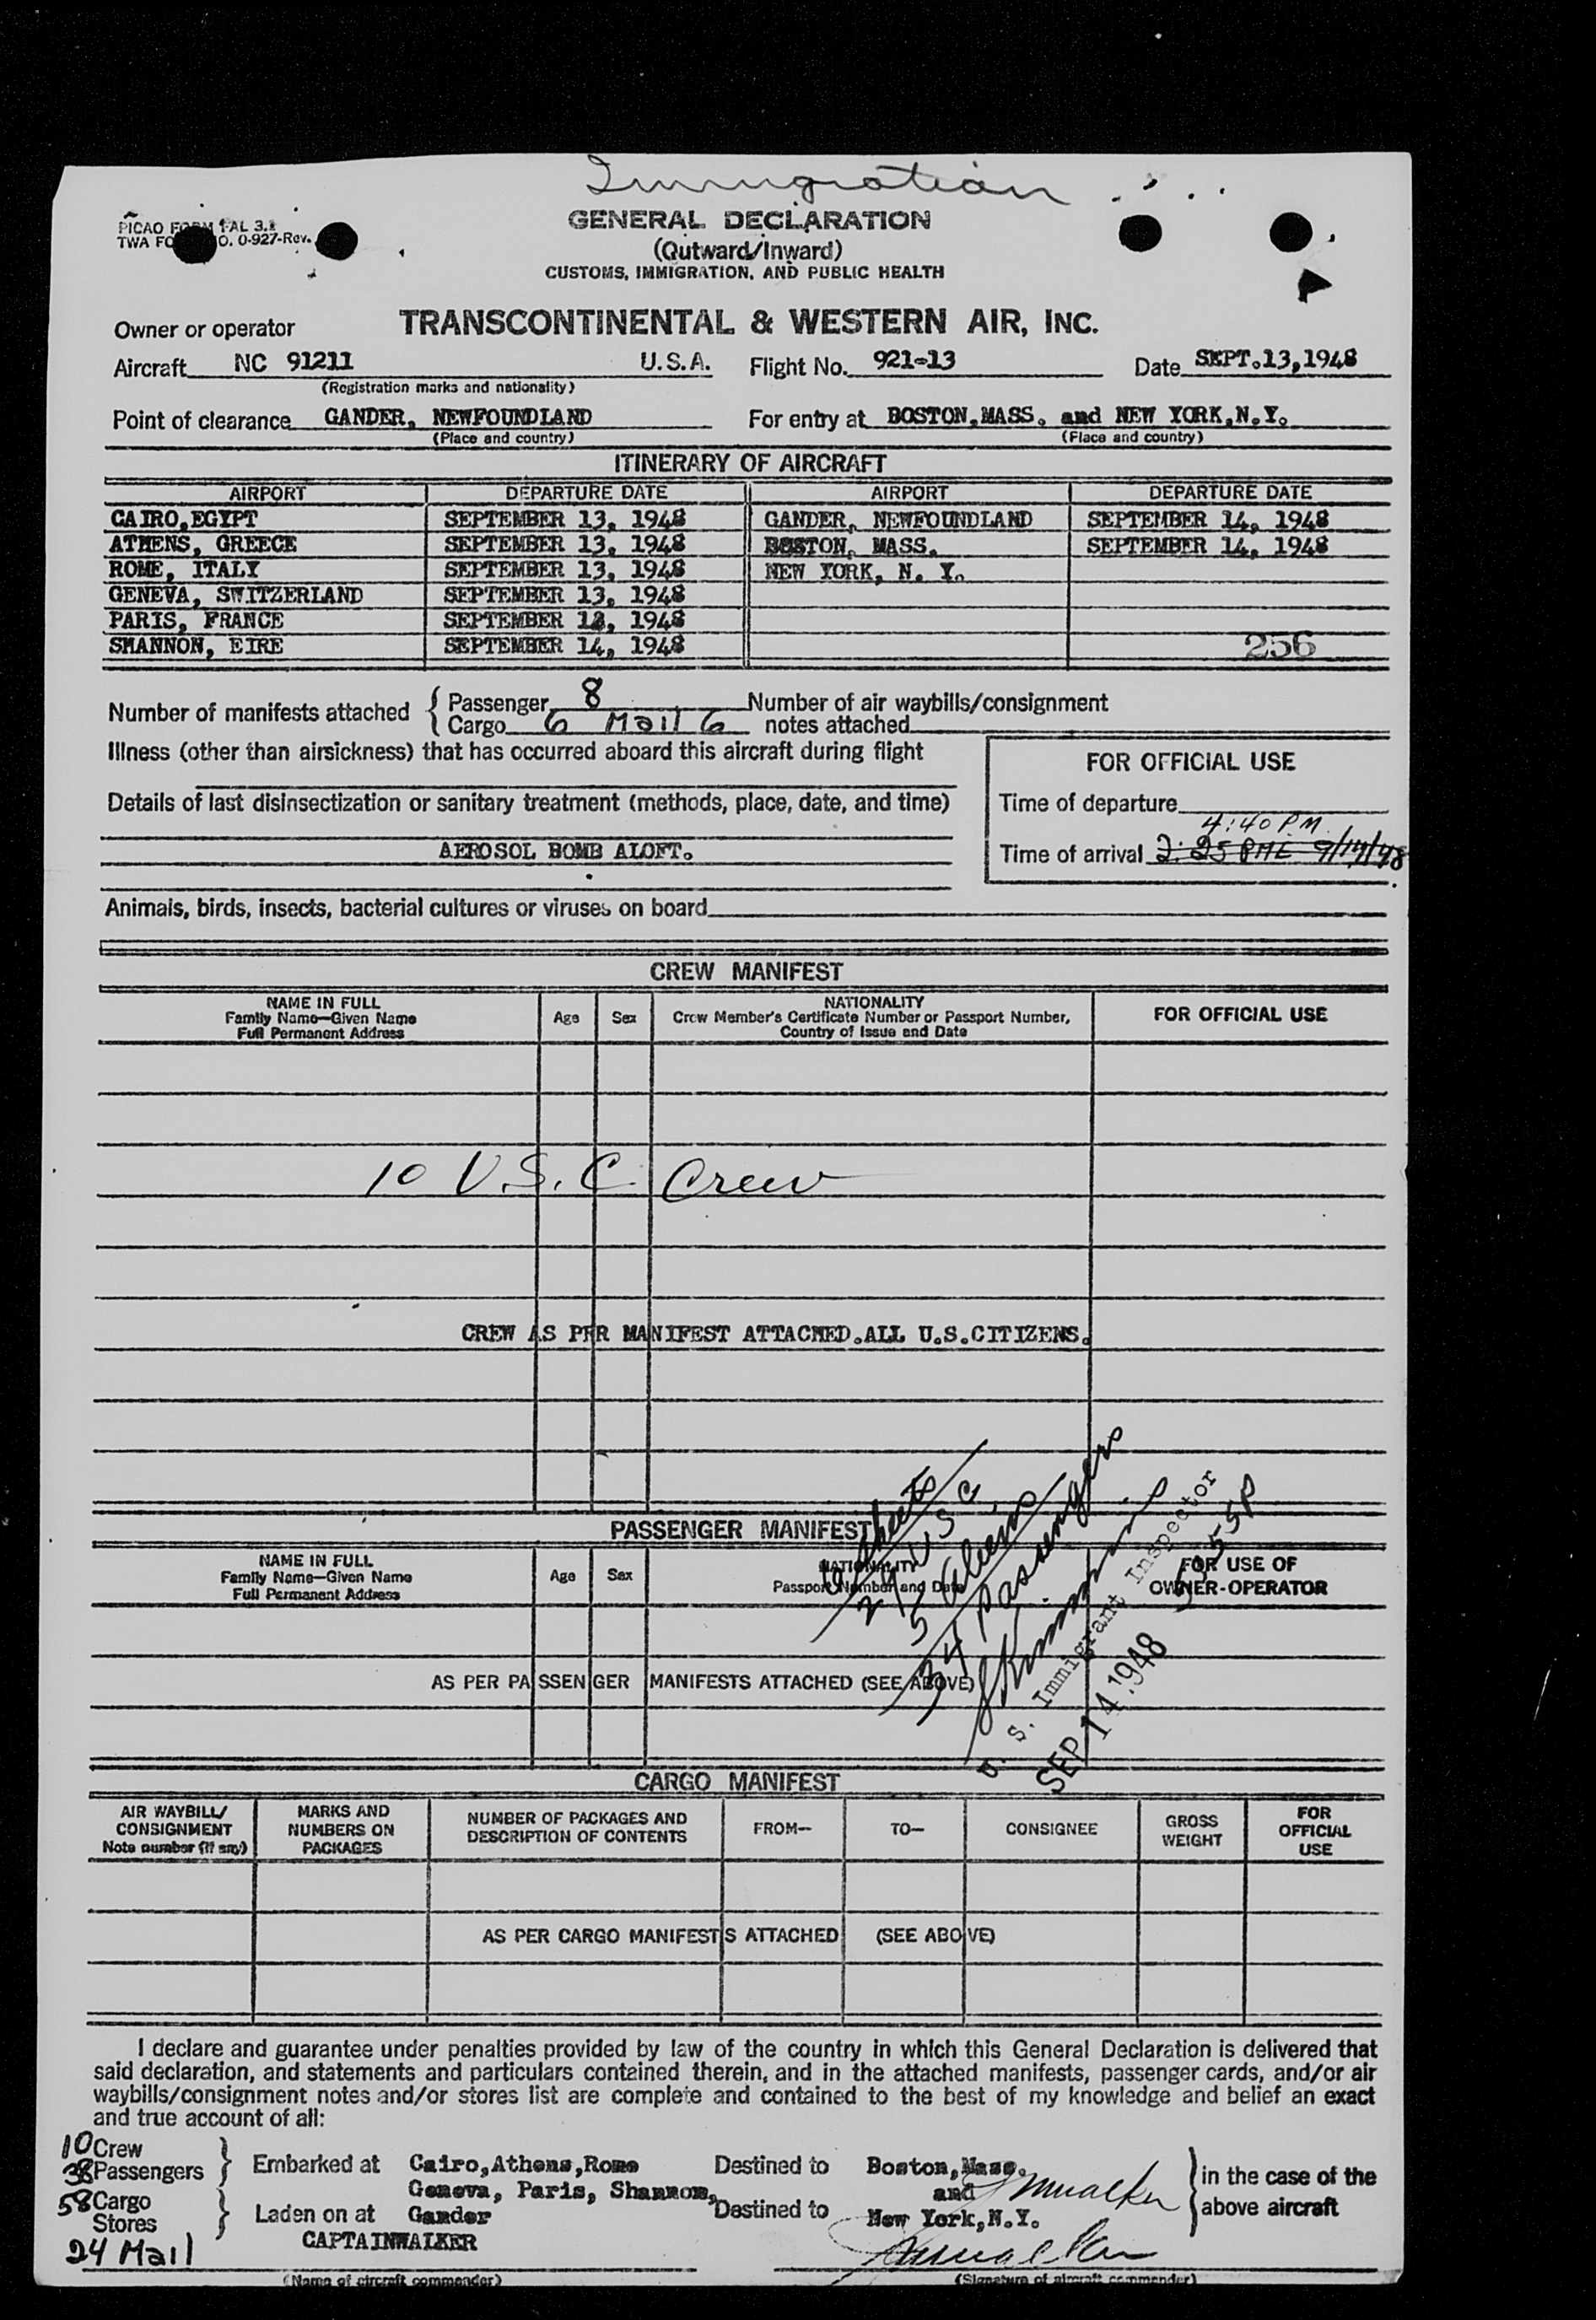 Immigration
PICAO FORM FAL 3.1
TWA FO O. 0-927-Rev.
GENERAL DECLARATION
(Outward/Inward)
CUSTOMS, IMMIGRATION, AND PUBLIC HEALTH
Owner or operator TRANSCONTINENTAL & WESTERN AIR, INC.
Aircraft NC 91211 U.S.A. Flight No. 921-13 Date SEPT.13,1948
(Registration marks and nationality)
Point of clearance GANDER, NEWFOUNDLAND For entry at BOSTON,MASS. and NEW YORK,N.Y.
(Place and country) (Place and country)
ITINERARY OF AIRCRAFT
AIRPORT DEPARTURE DATE AIRPORT DEPARTURE DATE
CAIRO,EGYPT SEPTEMBER 13, 1948 GANDER, NEWFOUNDLAND SEPTEMBER 14, 1948
ATHENS, GREECE SEPTEMBER 13, 1948 BOSTON, MASS. SEPTEMBER 14, 1948
ROME, ITALY SEPTEMBER 13, 1948 NEW YORK, N. Y.
GENEVA, SWITZERLAND SEPTEMBER 13, 1948
PARIS, FRANCE SEPTEMBER 13, 1948
SHANNON, EIRE SEPTEMBER 14, 1948 256
Number of manifests attached { Passenger 8 Number of air waybills/consignment
Cargo 6 Mail 6 notes attached
Illness (other than airsickness) that has occurred aboard this aircraft during flight
FOR OFFICIAL USE
Details of last disinsectization or sanitary treatment (methods, place, date, and time)
Time of departure
4:40 P.M.
AEROSOL BOMB ALOFT.
Time of arrival 2:25 PME 9/14/48
Animals, birds, insects, bacterial cultures or viruses on board
CREW MANIFEST
NAME IN FULL Age Sex NATIONALITY FOR OFFICIAL USE
Family Name—Given Name Crew Member's Certificate Number or Passport Number,
Full Permanent Address Country of Issue and Date
10 U.S.C. Crew
CREW AS PER MANIFEST ATTACHED.ALL U.S.CITIZENS.
PASSENGER MANIFEST
NAME IN FULL Age Sex NATIONALITY FOR USE OF
Family Name—Given Name Passport Number and Date OWNER-OPERATOR
Full Permanent Address
sheets
29 USC
5 Aliens
34 Passengers
U. S. Immigrant Inspector
SEP 14 1948
5:55P
AS PER PASSENGER MANIFESTS ATTACHED (SEE ABOVE)
CARGO MANIFEST
AIR WAYBILL/ MARKS AND NUMBER OF PACKAGES AND FROM— TO— CONSIGNEE GROSS FOR
CONSIGNMENT NUMBERS ON DESCRIPTION OF CONTENTS WEIGHT OFFICIAL
Note number (if any) PACKAGES USE
AS PER CARGO MANIFESTS ATTACHED (SEE ABOVE)
I declare and guarantee under penalties provided by law of the country in which this General Declaration is delivered that
said declaration, and statements and particulars contained therein, and in the attached manifests, passenger cards, and/or air
waybills/consignment notes and/or stores list are complete and contained to the best of my knowledge and belief an exact
and true account of all:
10 Crew
38 Passengers } Embarked at Cairo,Athens,Rome Destined to Boston,Mass. in the case of the
Geneva, Paris, Shannon, and
58 Cargo Destined to above aircraft
Stores } Laden on at Gander New York,N.Y.
24 Mail CAPTAINWALKER
(Name of aircraft commander) (Signature of aircraft commander)